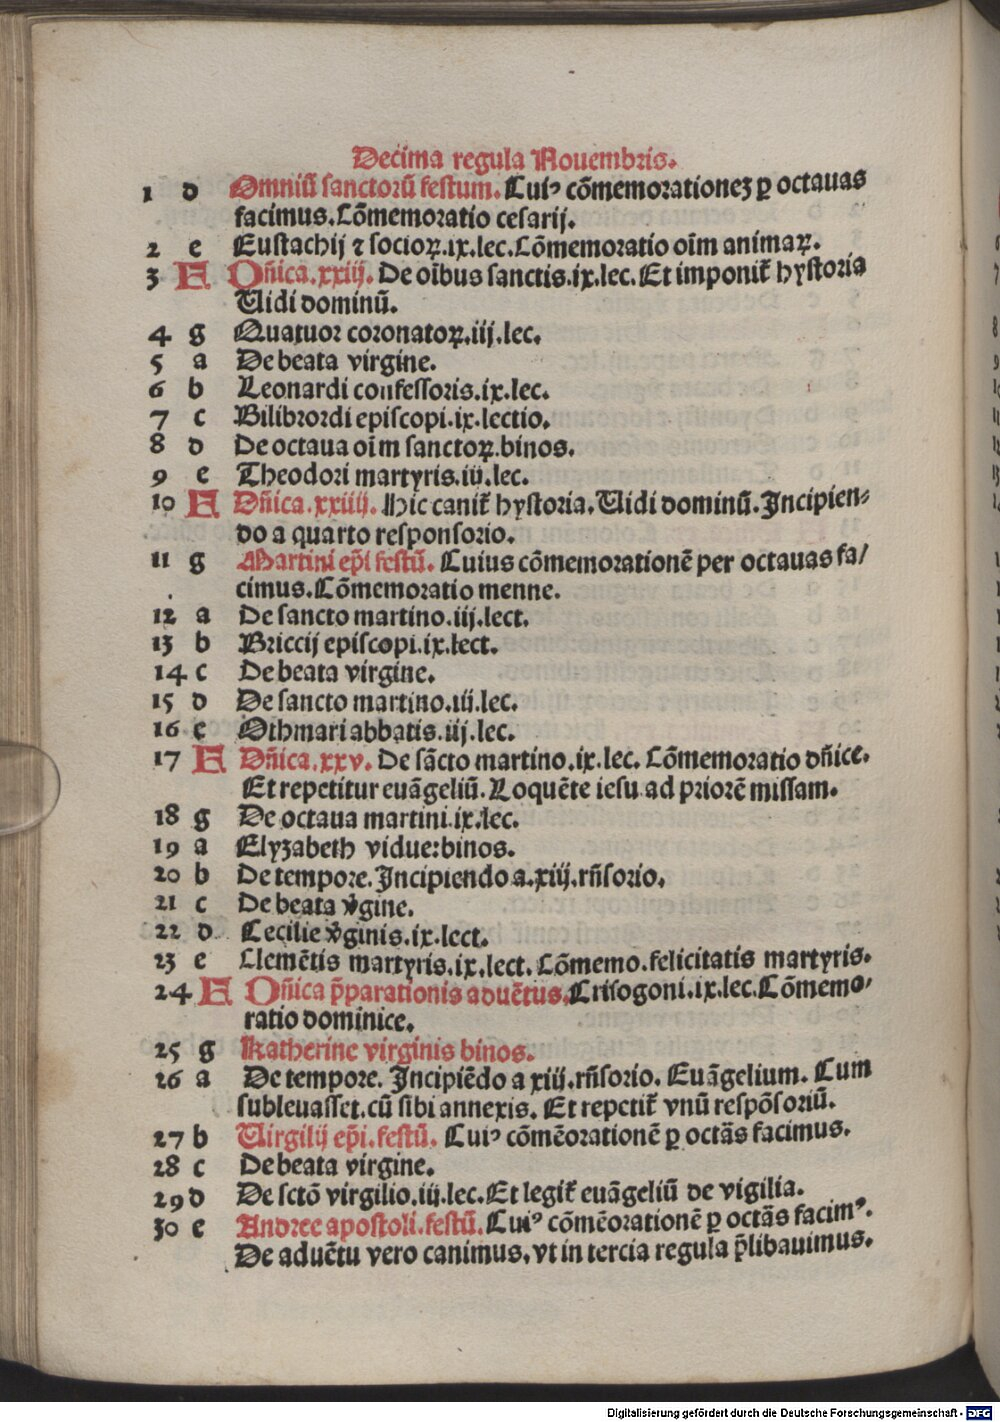 Decima regula Nouembris.
1 d Omniū sanctorū festum. Cuiꝰ cōmemorationeꝫ ꝑ octauas
facimus. Cōmemoratio cesarij.
2 e Eustachij ⁊ socioꝝ. ix. lec. Cōmemoratio oīm animaꝝ.
3 F Dn̄ica. xxiij. De oībus sanctis. ix. lec. Et imponit᷑ hystoria
Uidi dominū.
4 g Quatuor coronatoꝝ. iij. lec.
5 a De beata virgine.
6 b Leonardi confessoris. ix. lec.
7 c Bilibrordi episcopi. ix. lectio.
8 d De octaua oīm sanctoꝝ. binos.
9 e Theodori martyris. iij. lec.
10 F Dn̄ica. xxiiij. Hic canit᷑ hystoria. Uidi dominū. Incipien⸗
do a quarto responsorio.
11 g Martini ep̄i festū. Cuius cōmemorationē per octauas fa/
cimus. Cōmemoratio menne.
12 a De sancto martino. iij. lect.
13 b Briccij episcopi. ix. lect.
14 c De beata virgine.
15 d De sancto martino. iij. lec.
16 e Othmari abbatis. iij. lec.
17 F Dn̄ica. xxv. De sācto martino. ix. lec. Cōmemoratio dn̄ice.
Et repetitur euāgeliū. Loquēte iesu ad priorē missam.
18 g De octaua martini. ix. lec.
19 a Elyzabeth vidue: binos.
20 b De tempore. Incipiendo a. xiij. rn̄sorio.
21 c De beata v̓gine.
22 d Cecilie v̓ginis. ix. lect.
23 e Clemētis martyris. ix. lect. Cōmemo. felicitatis martyris.
24 F Dn̄ica p̄parationis aduētus. Crisogoni. ix. lec. Cōmemo/
ratio dominice.
25 g Katherine virginis binos.
26 a De tempore. Incipiēdo a xiij. rn̄sorio. Euāgelium. Cum
subleuasset. cū sibi annexis. Et repetit᷑ vnū respōsoriū.
27 b Uirgilij ep̄i. festū. Cuiꝰ cōmēorationē ꝑ octās facimus.
28 c De beata virgine.
29 d De sctō virgilio. iij. lec. Et legit᷑ euāgeliū de vigilia.
30 e Andree apostoli. festū. Cuiꝰ cōmēorationē ꝑ octās facimꝰ.
De aduētu vero canimus. vt in tercia regula p̄libauimus.
Digitalisierung gefördert durch die Deutsche Forschungsgemeinschaft - DFG